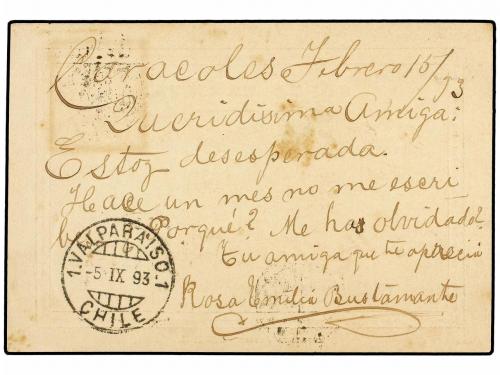 Caracoles Febrero 15/93
Queridisima Amiga:
Estoy desesperada.
Hace un mes no me escri
bes Porqué? Me has olvidado?
Tu amiga que te aprecia
Rosa Emilia Bustamante
1.VALPARAISO.1
-5 IX 93
CHILE